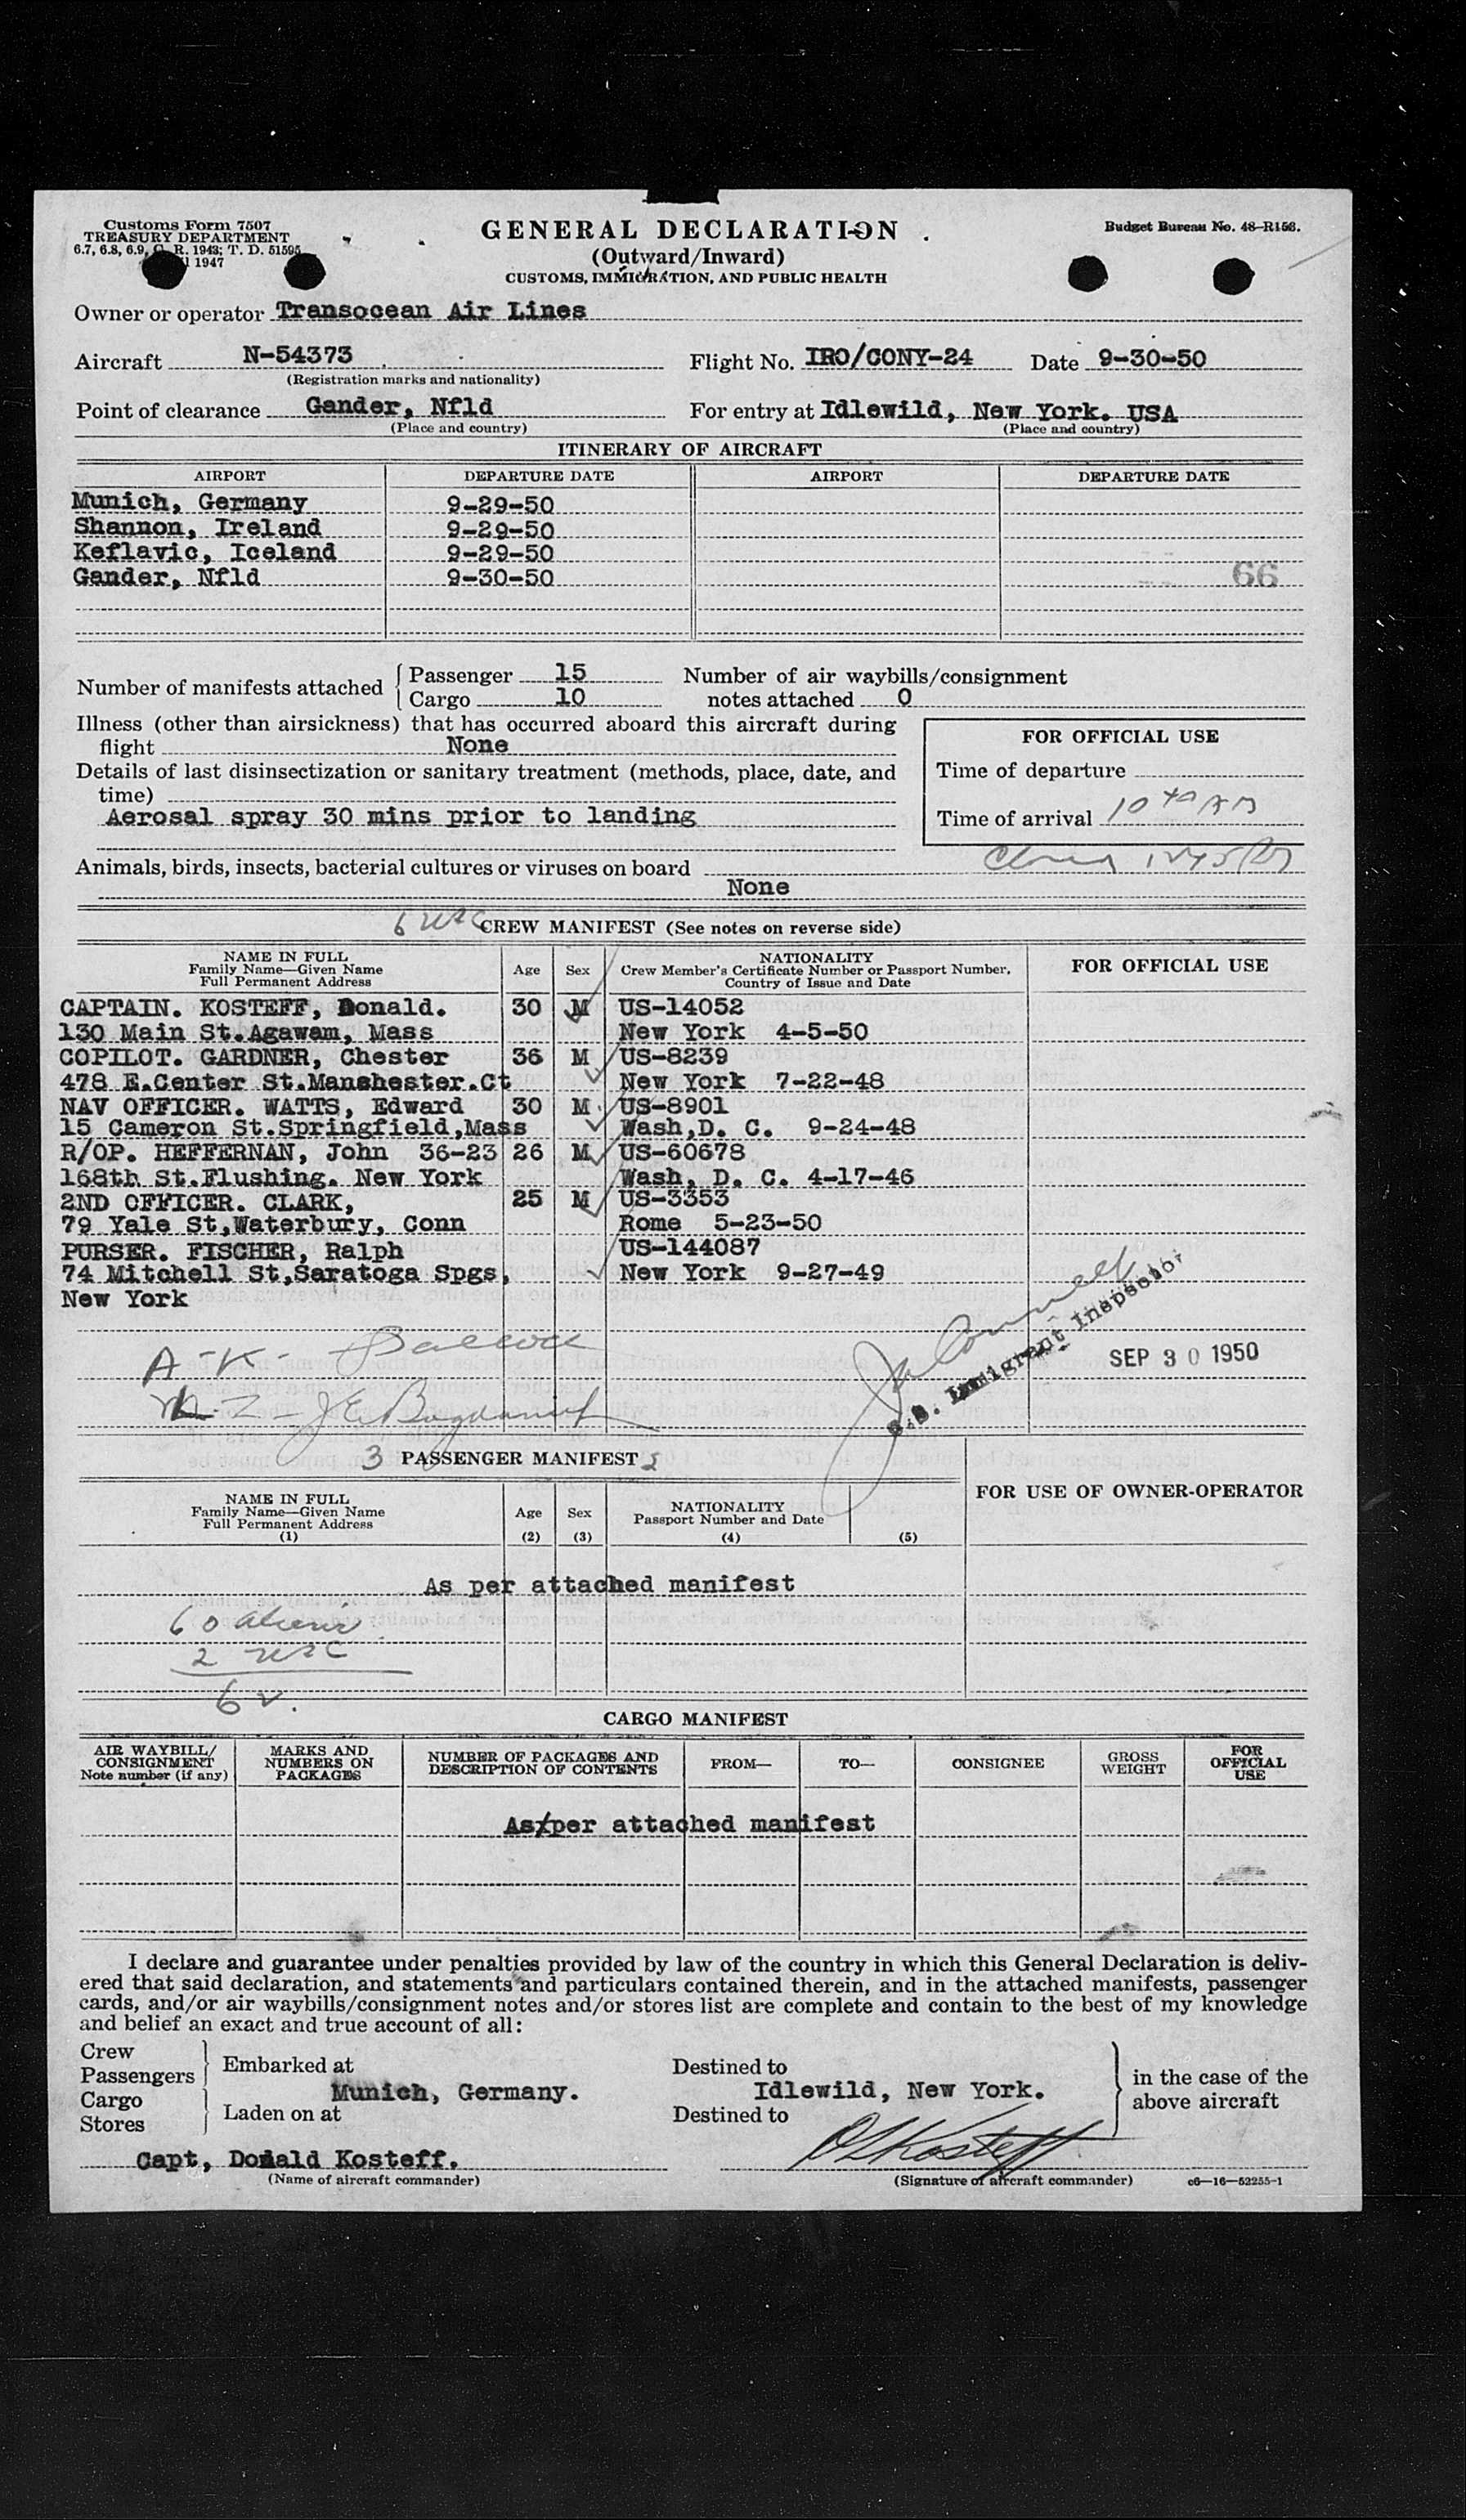 Customs Form 7507
TREASURY DEPARTMENT
6.7, 6.8, 6.9, C. R. 1943; T. D. 51595
1947
GENERAL DECLARATION
(Outward/Inward)
CUSTOMS, IMMIGRATION, AND PUBLIC HEALTH
Budget Bureau No. 48-R158.
Owner or operator Transocean Air Lines
Aircraft N-54373 Flight No. IRO/CONY-24 Date 9-30-50
(Registration marks and nationality)
Point of clearance Gander, Nfld For entry at Idlewild, New York. USA
(Place and country) (Place and country)
ITINERARY OF AIRCRAFT
AIRPORT DEPARTURE DATE AIRPORT DEPARTURE DATE
Munich, Germany 9-29-50
Shannon, Ireland 9-29-50
Keflavic, Iceland 9-29-50
Gander, Nfld 9-30-50 66
Number of manifests attached Passenger 15 Number of air waybills/consignment
Cargo 10 notes attached 0
Illness (other than airsickness) that has occurred aboard this aircraft during
flight None
Details of last disinsectization or sanitary treatment (methods, place, date, and
time)
Aerosal spray 30 mins prior to landing
FOR OFFICIAL USE
Time of departure
Time of arrival 10
Animals, birds, insects, bacterial cultures or viruses on board
None
6 USC CREW MANIFEST (See notes on reverse side)
NAME IN FULL
Family Name—Given Name
Full Permanent Address
Age Sex
NATIONALITY
Crew Member's Certificate Number or Passport Number,
Country of Issue and Date
FOR OFFICIAL USE
CAPTAIN. KOSTEFF, Donald. 30 M US-14052
130 Main St.Agawam, Mass New York 4-5-50
COPILOT. GARDNER, Chester 36 M US-8239
478 E.Center St.Manshester.Ct New York 7-22-48
NAV OFFICER. WATTS, Edward 30 M US-8901
15 Cameron St.Springfield,Mass Wash,D. C. 9-24-48
R/OP. HEFFERNAN, John 36-23 26 M US-60678
168th St.Flushing. New York Wash, D. C. 4-17-46
2ND OFFICER. CLARK, 25 M US-3353
79 Yale St,Waterbury, Conn Rome 5-23-50
PURSER. FISCHER, Ralph US-144087
74 Mitchell St,Saratoga Spgs, New York 9-27-49
New York
A-K-
U.S. Immigrant Inspector
SEP 30 1950
3 PASSENGER MANIFEST
NAME IN FULL
Family Name—Given Name
Full Permanent Address
(1)
Age
(2)
Sex
(3)
NATIONALITY
Passport Number and Date
(4)
(5)
FOR USE OF OWNER-OPERATOR
As per attached manifest
60 aliens
2 USC
62.
CARGO MANIFEST
AIR WAYBILL/
CONSIGNMENT
Note number (if any)
MARKS AND
NUMBERS ON
PACKAGES
NUMBER OF PACKAGES AND
DESCRIPTION OF CONTENTS
FROM—
TO—
CONSIGNEE
GROSS
WEIGHT
FOR
OFFICIAL
USE
As/per attached manifest
I declare and guarantee under penalties provided by law of the country in which this General Declaration is deliv-
ered that said declaration, and statements and particulars contained therein, and in the attached manifests, passenger
cards, and/or air waybills/consignment notes and/or stores list are complete and contain to the best of my knowledge
and belief an exact and true account of all:
Crew
Passengers
Cargo
Stores
Embarked at
Munich, Germany.
Laden on at
Destined to
Idlewild, New York.
Destined to
in the case of the
above aircraft
Capt, Donald Kosteff.
(Name of aircraft commander)
DLKosteff
(Signature of aircraft commander)
c6—16—52255-1